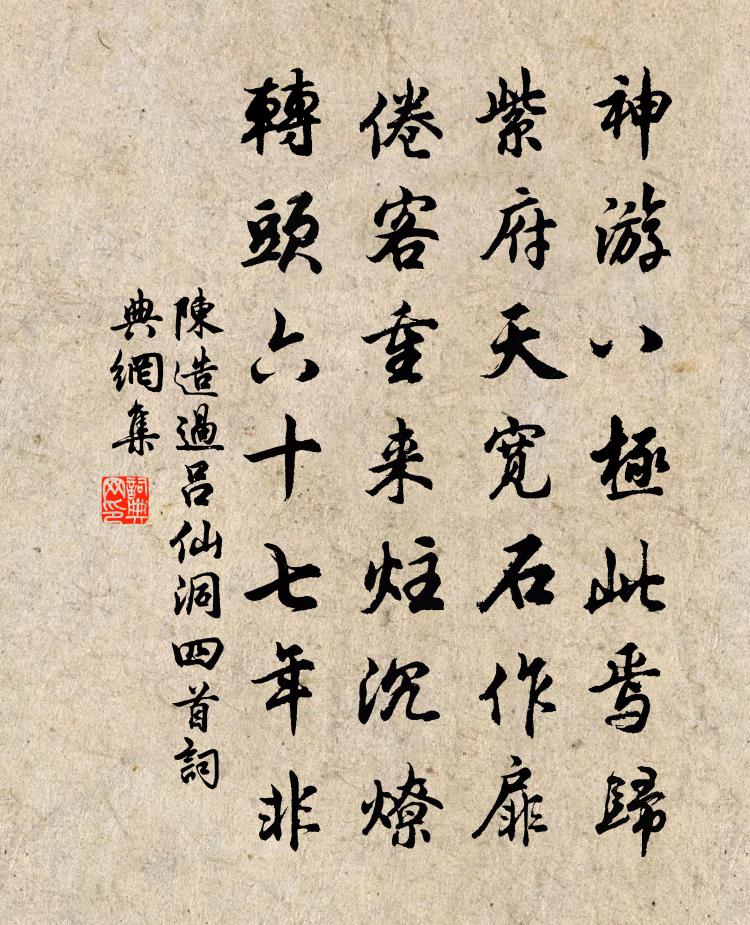 神游八極此焉歸
紫府天寬石作扉
倦客重来炷沉燎
轉頭六十七年非
陳造過吕仙洞四首詞
典網集
詞典
网印